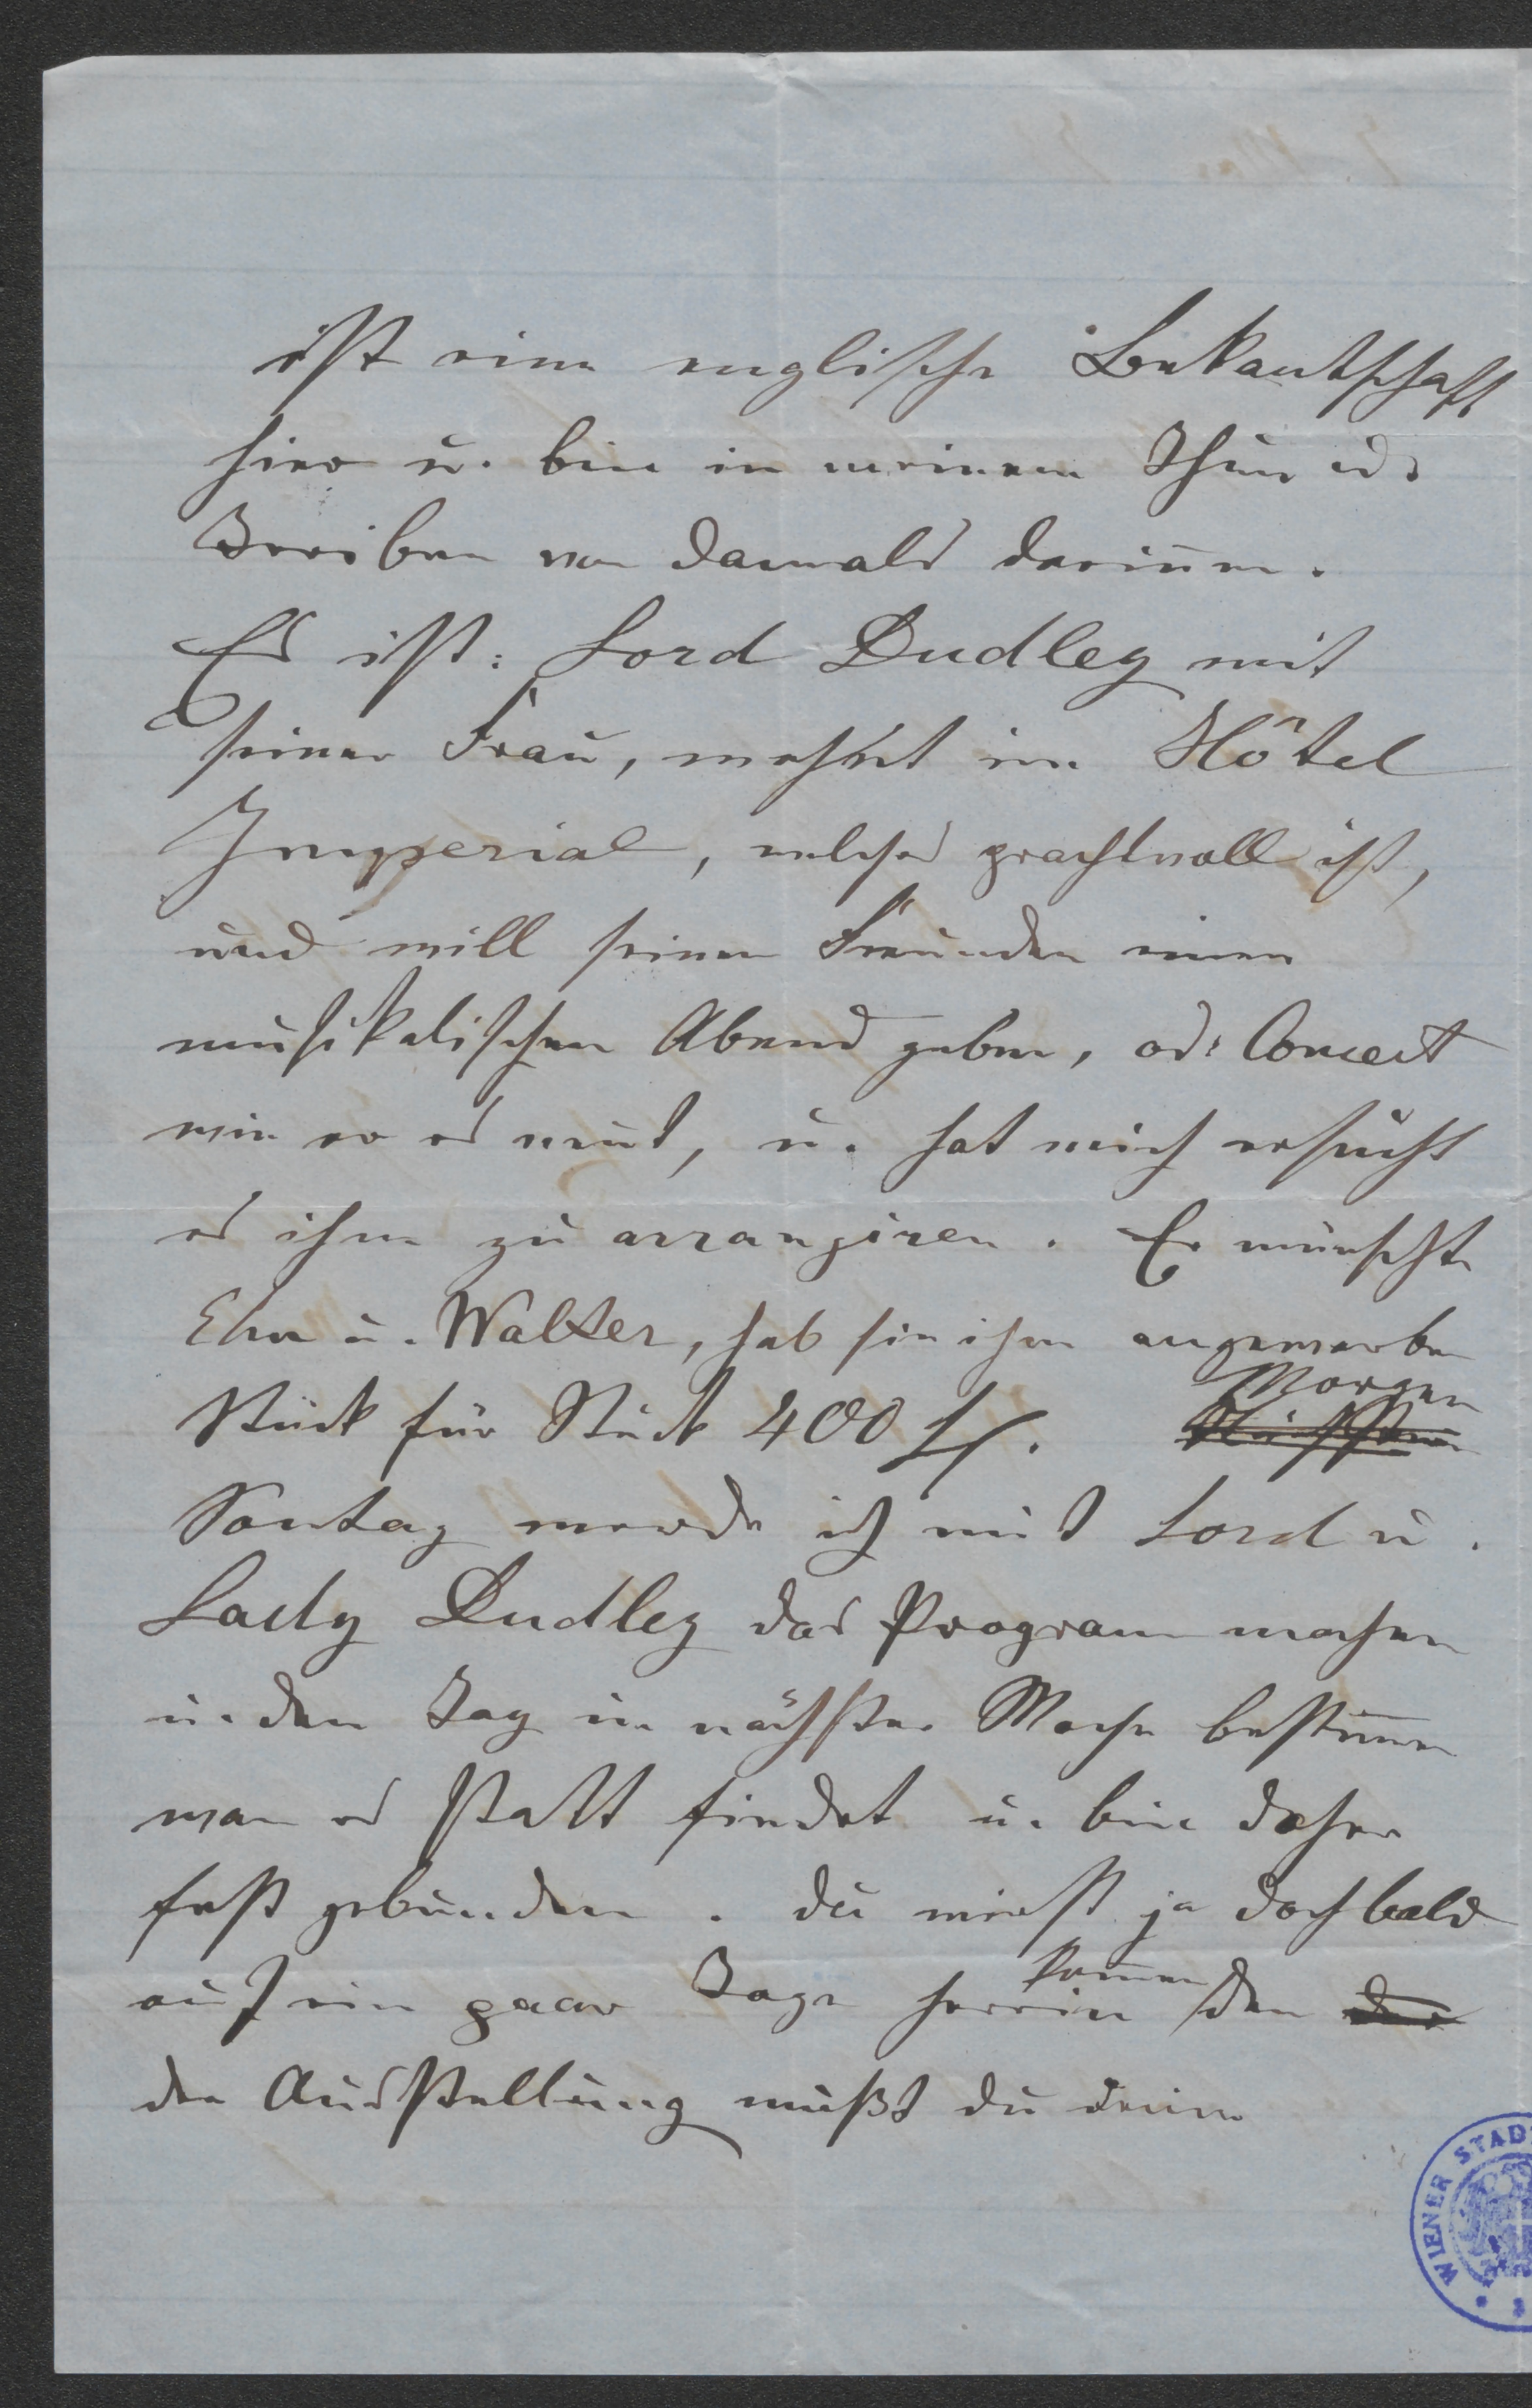 ist eine englische Bekantschaft
hier u. bin in meinem Thun u.
Treiben von damals darinnen.
Es ist: Lord Dudley mit
seiner Frau, wohnt im Hôtel
Imperial, welches prachtvoll ist,
und will seinen Freunden einen
musikalischen Abend geben, od: Concert
wie er es nent, u. hat mich ersucht
es ihm zu arrangiren. Er wünscht
Ehn u. Walter, hab sie ihm angeworben
Stück für Stück 400 fl. Morgen
Sontag werde ich mit Lord u.
Lady Dudley das Program machen
u. den Tag in nächster Woche bestimmen
wan es statt findet u. bin daher
fest gebunden. du wirst ja doch bald
auf ein paar Tage herein kommen den
die Ausstellung mußt du deine
WIENER STAD